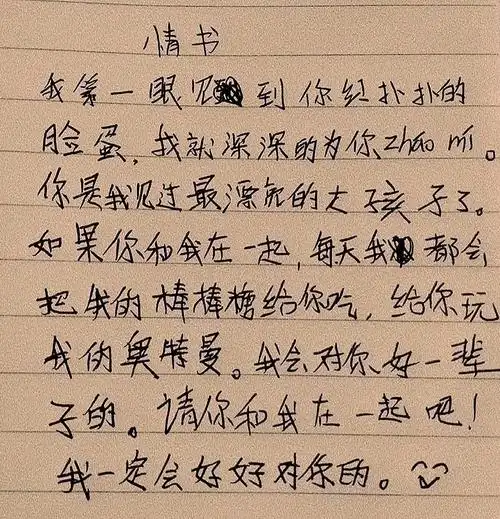 情书
我第一眼见到你红扑扑的
脸蛋，我就深深的为你zhao mi。
你是我见过最漂亮的大孩子了。
如果你和我在一起，每天我都会
把我的棒棒糖给你吃，给你玩
我的奥特曼。我会对你好一辈
子的。请你和我在一起吧！
我一定会好好对你的。